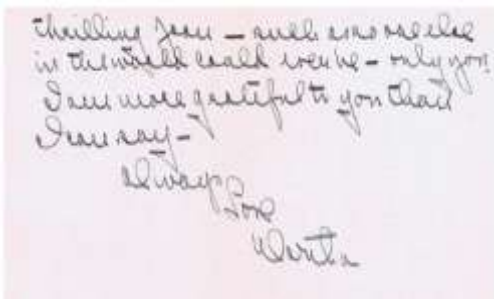 thrilling Joan – such as no one else
in the world could – only you!
I am more grateful to you than
I can say –
Always
Love
Martha